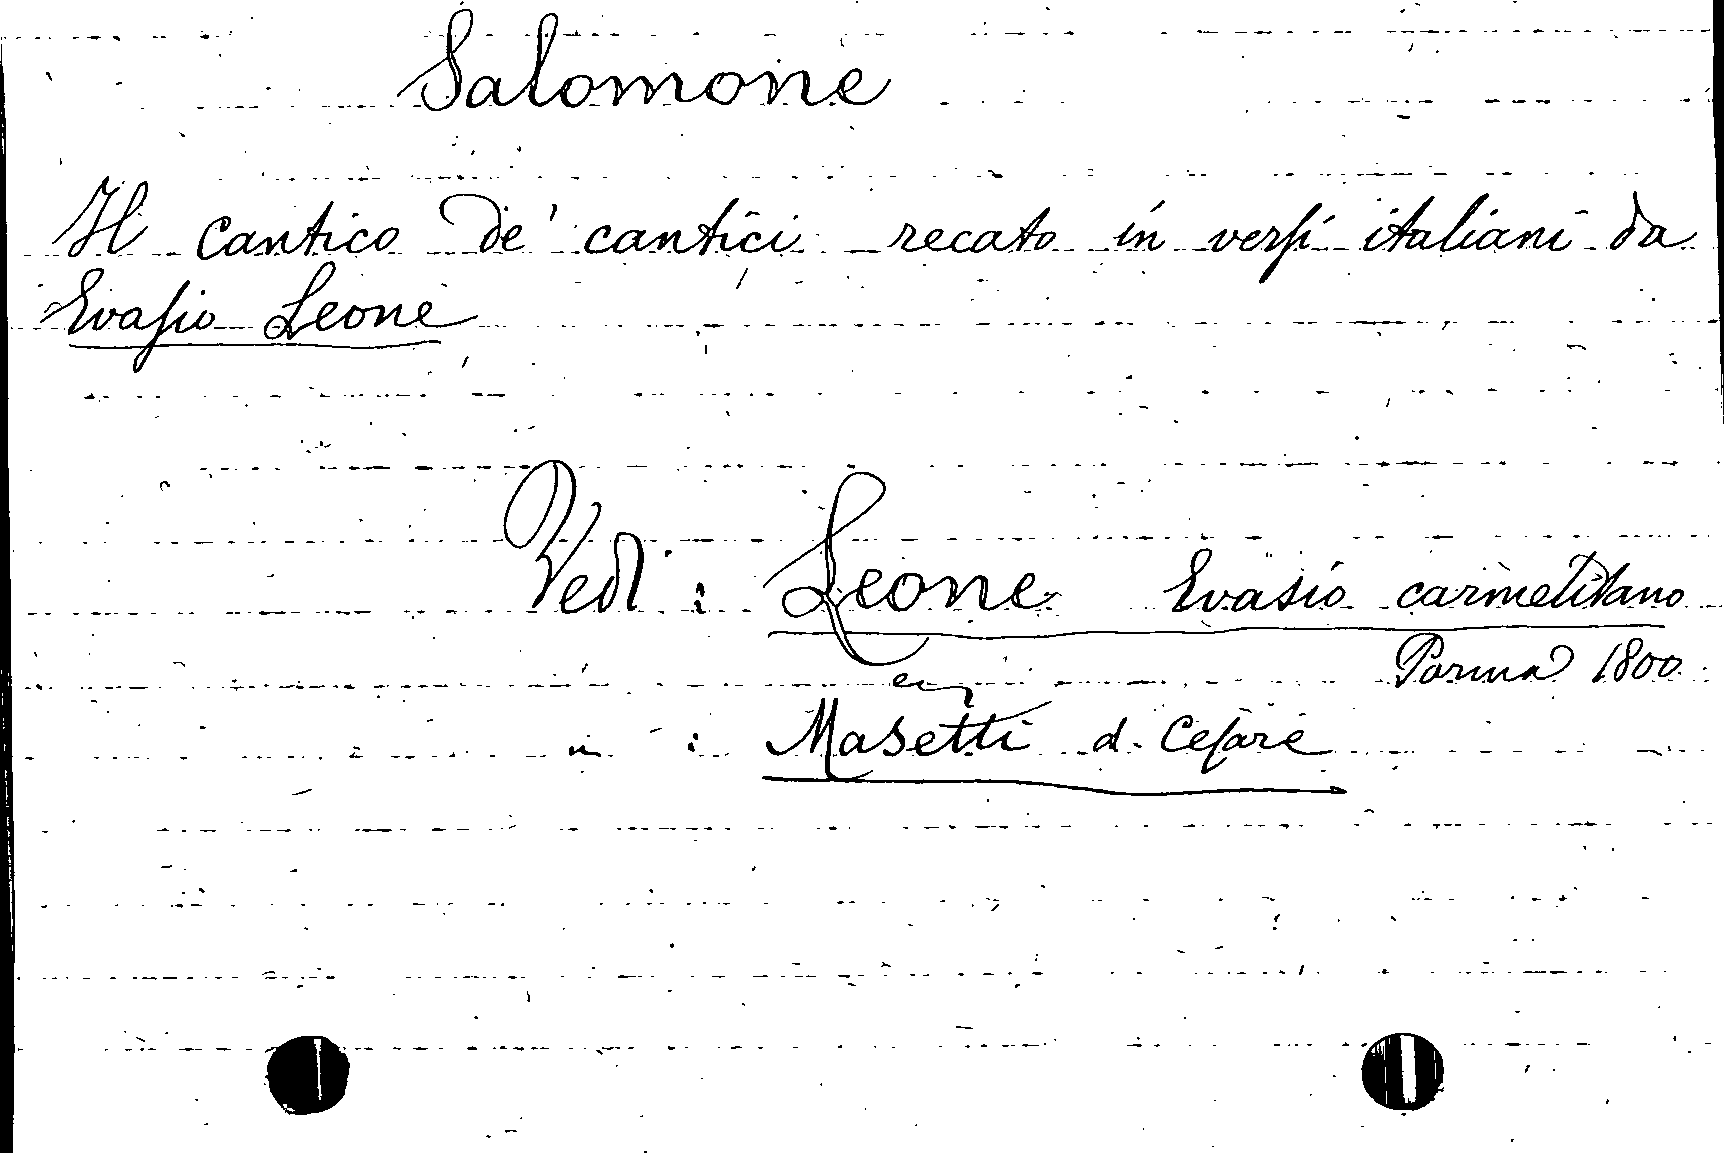 Salomone
Il cantico de' cantici recato in verſi italiani da
Evaſio Leone
Vedi: Leone Evasio carmelitano
Parma 1800
" : Masetti d. Ceſare